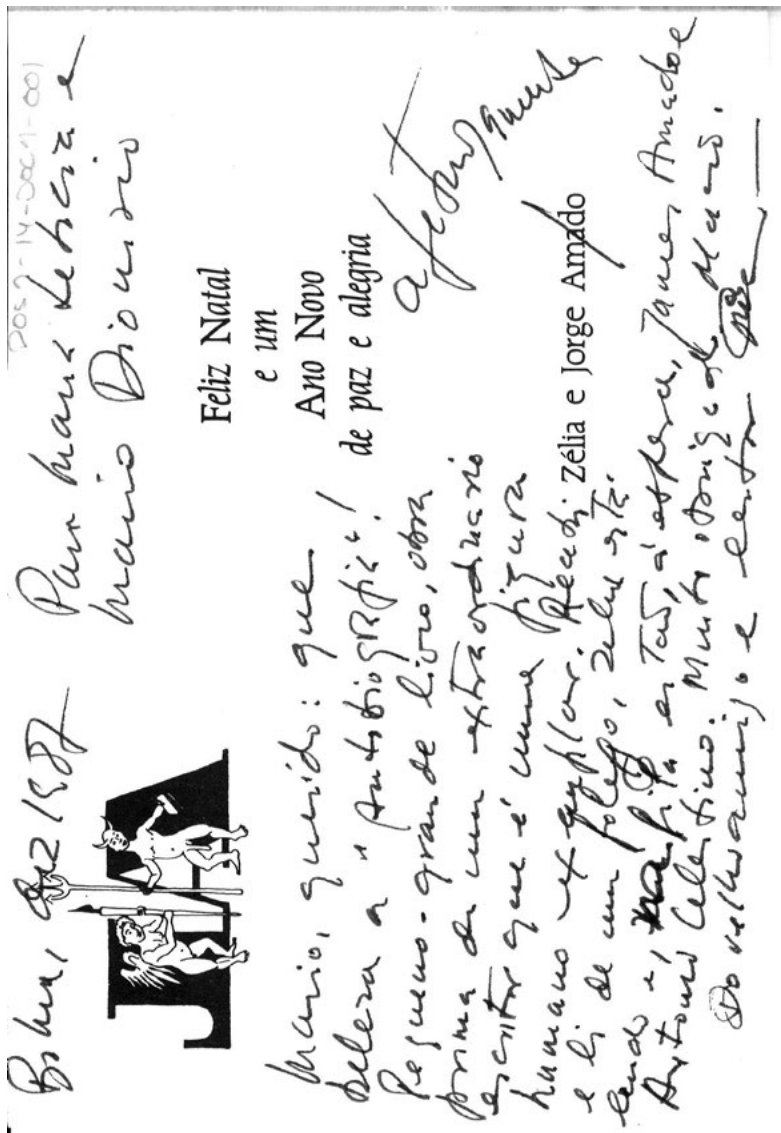 DOS2-14-DOC4-001
Bahia, dez 1987
Para Maria Leticia e
Mario Dionisio
JA
Feliz Natal
e um
Ano Novo
de paz e alegria
afetuosamente
Zélia e Jorge Amado
Mario, querido: que
beleza a "Autobiografia"!
Pequeno-grande livro, obra
prima de um extraordinario
escritor que é uma figura
humana exemplar. Recebi
e li de um folego, Zelia está
lendo e, na fila estão, à espera, James Amado e
Antonio Celestino. Muito obrigado Mario.
Do velho amigo e leitor